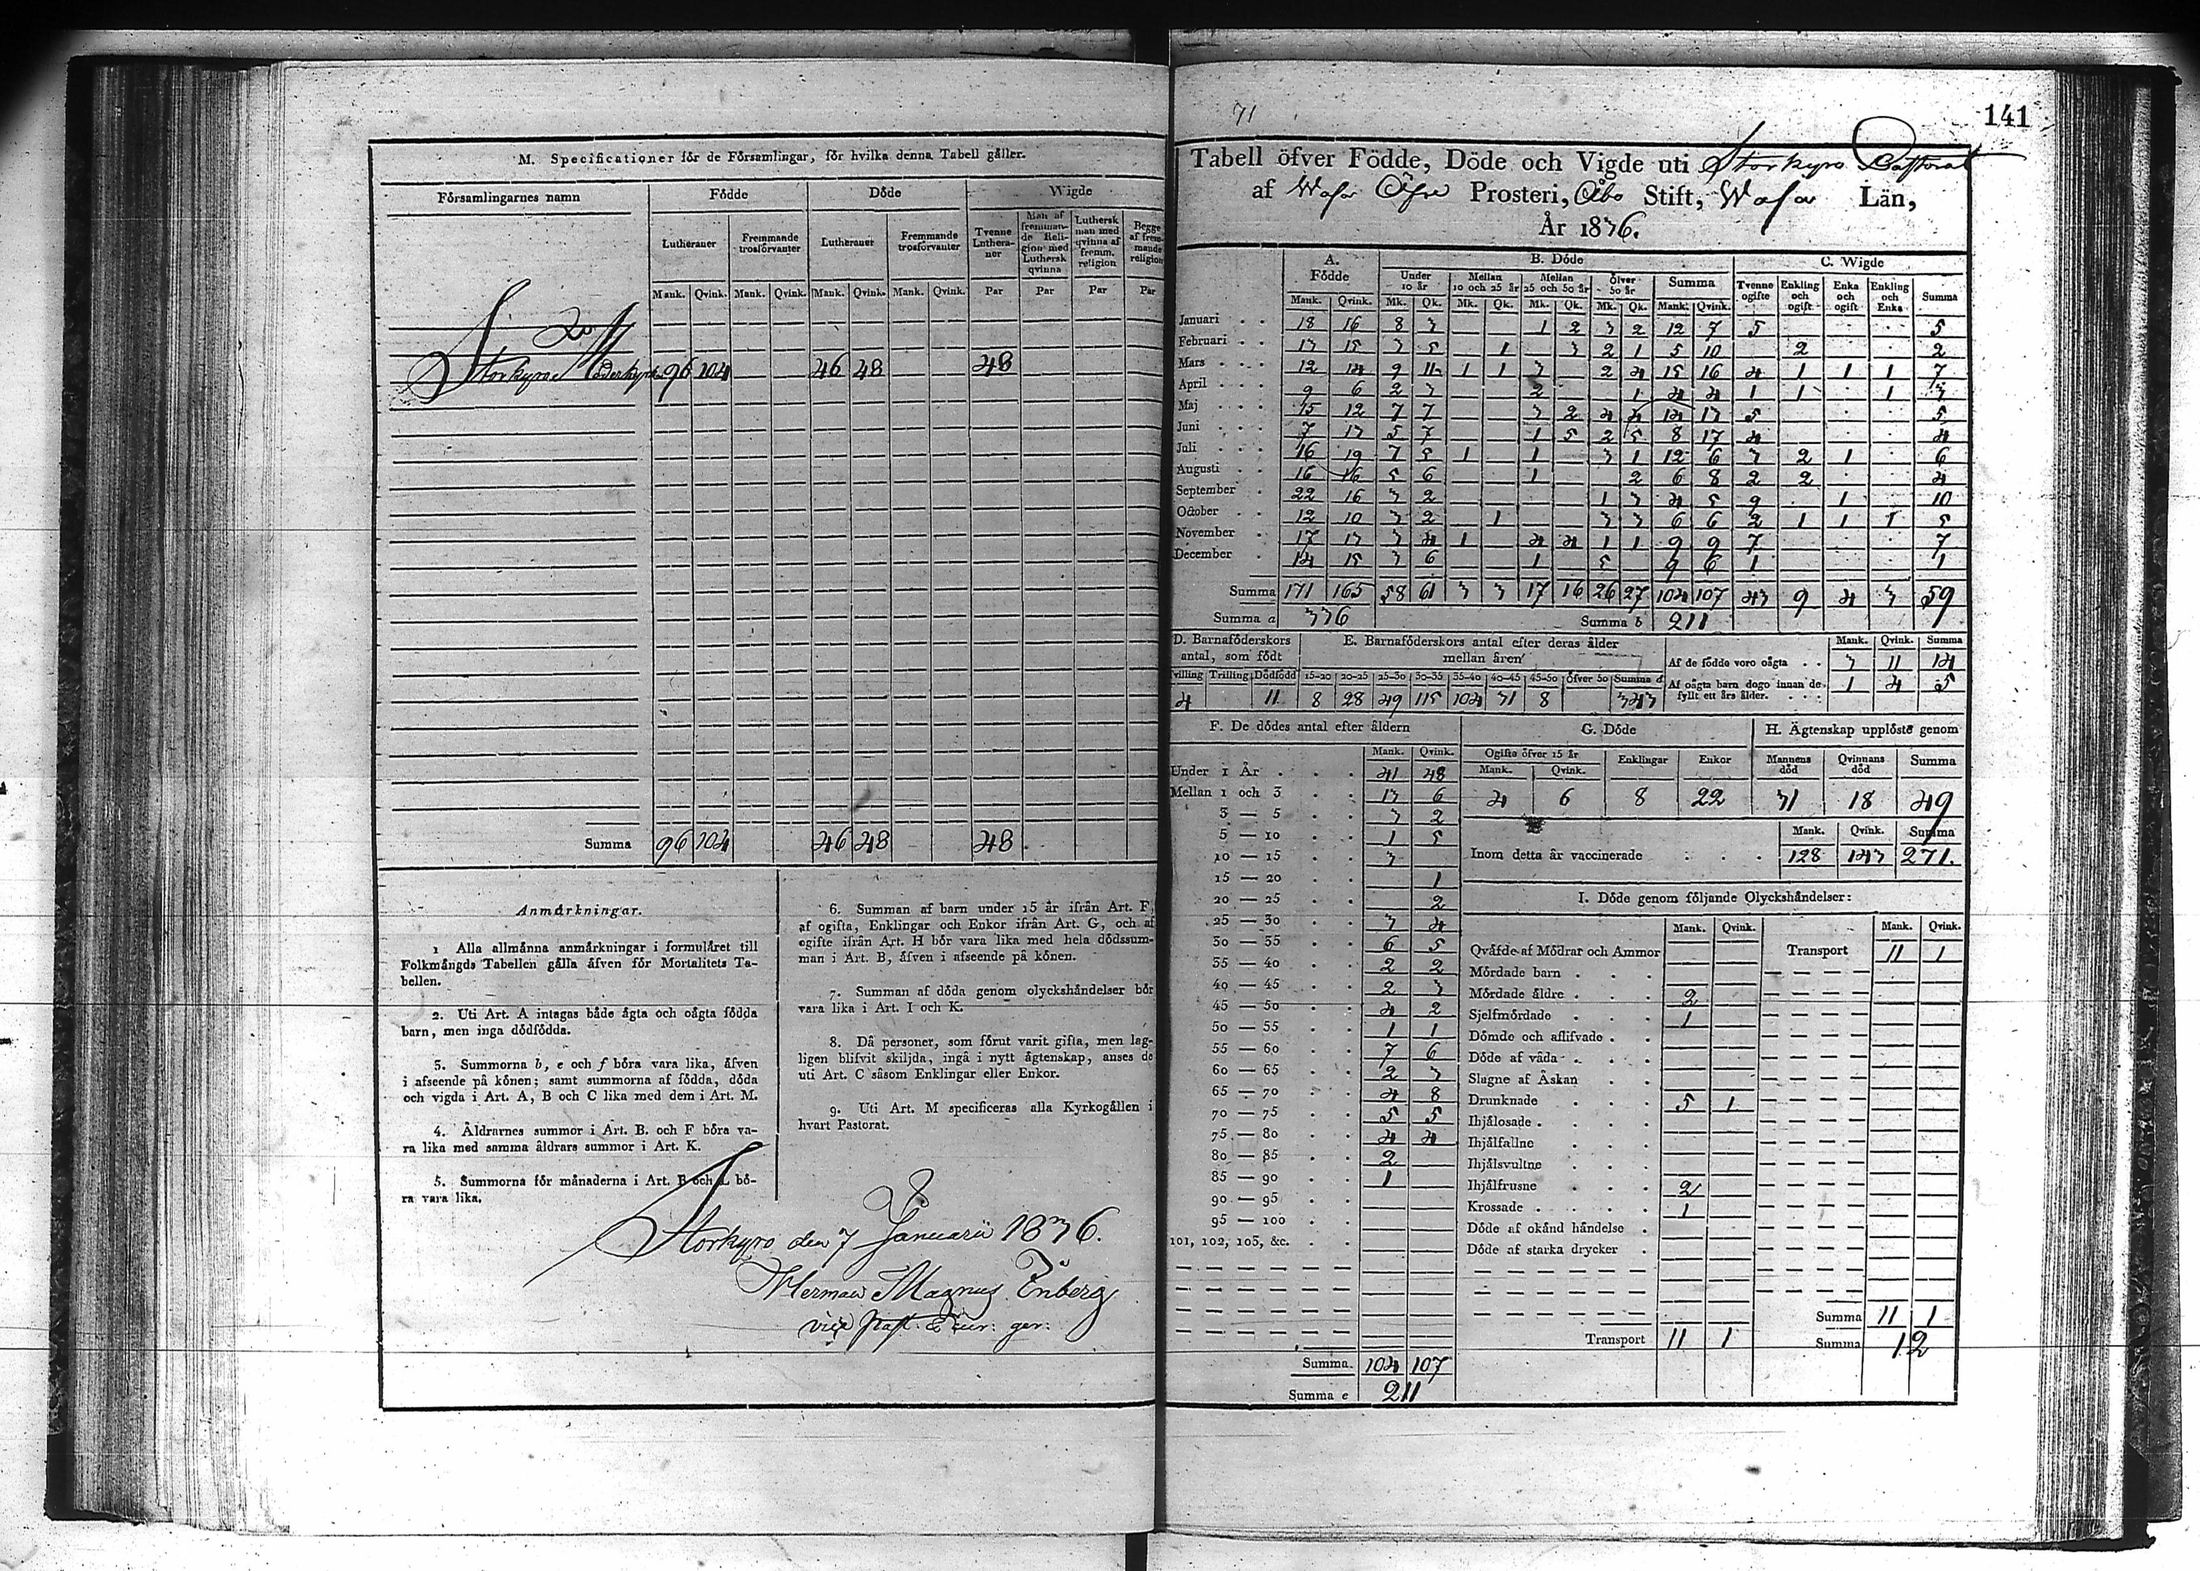 M. Specificationer för de Församlingar, för hvilka denna Tabell gäller.
Församlingarnes namn Födde Döde Wigde
Lutheraner Fremmande trosförvanter Lutheraner Fremmande trosförvanter Tvenne Lutheraner Man af fremmande Religion med Luthersk qvinna Luthersk man med qvinna af fremm. religion Begge af fremmande religion
Mank. Qvink. Mank. Qvink. Mank. Qvink. Mank. Qvink. Par Par Par Par
Storkyro Moderkyrka 96 104 46 48 48
Summa 96 104 46 48 48
Anmärkningar.
1 Alla allmänna anmärkningar i formuläret till
Folkmängds Tabellen gälla äfven för Mortalitets Ta-
bellen.
2. Uti Art. A intagas både ägta och oägta födda
barn, men inga dödfödda.
3. Summorna b, e och f böra vara lika, äfven
i afseende på könen; samt summorna af födda, döda
och vigda i Art. A, B och C lika med dem i Art. M.
4. Åldrarnes summor i Art. B. och F böra va-
ra lika med samma åldrars summor i Art. K.
5. Summorna för månaderna i Art. B och L bö-
ra vara lika.
6. Summan af barn under 15 år ifrån Art. F,
af ogifta, Enklingar och Enkor ifrån Art. G, och af
ogifte ifrån Art. H bör vara lika med hela dödssum-
man i Art. B, äfven i afseende på könen.
7. Summan af döda genom olyckshändelser bör
vara lika i Art. I och K.
8. Då personer, som förut varit gifta, men lag-
ligen blifvit skiljda, ingå i nytt ägtenskap, anses de
uti Art. C såsom Enklingar eller Enkor.
9. Uti Art. M specificeras alla Kyrkogällen i
hvart Pastorat.
Storkyro den 7 Januarii 1836.
Herman Magnus Enberg
vice Past.
71
141
Tabell öfver Födde, Döde och Vigde uti Storkyro Pastorat
af Wasa Öfre Prosteri, Åbo Stift, Wasa Län,
År 1836.
A. Födde B. Döde C. Wigde
Under 10 år Mellan 10 och 25 år Mellan 25 och 50 år Öfver 50 år Summa Tvenne ogifte Enkling och ogift Enka och ogift Enkling och Enka Summa
Mank. Qvink. Mk. Qk. Mk. Qk. Mk. Qk. Mk. Qk. Mank. Qvink.
Januari 18 16 8 3 1 2 3 2 12 7 5 5
Februari 13 15 3 5 1 3 2 1 5 10 2 2
Mars 12 14 9 11 1 1 3 2 4 15 16 4 1 1 1 7
April 9 6 2 3 2 1 4 4 1 1 1 3
Maj 15 12 7 7 3 2 4 4 14 13 5 5
Juni 7 13 5 7 1 5 2 5 8 17 4 4
Juli 16 19 7 5 1 1 3 1 12 6 3 2 1 6
Augusti 16 16 5 6 1 2 6 8 2 2 4
September 22 16 3 2 1 3 4 5 9 1 10
October 12 10 3 2 1 3 3 6 6 2 1 1 1 5
November 17 13 3 4 1 4 4 1 1 9 9 7 7
December 14 15 3 6 1 5 9 6 1 1
Summa 171 165 58 61 3 3 17 16 26 27 104 107 43 9 4 3 59
Summa a 336 Summa b 211
D. Barnaföderskors antal, som födt
Tvilling Trilling Dödfödd
4 11
E. Barnaföderskors antal efter deras ålder mellan åren
15-20 20-25 25-30 30-35 35-40 40-45 45-50 Öfver 50 Summa d
8 28 49 115 104 31 8 343
Mank. Qvink. Summa
Af de födde voro oägta 3 11 14
Af oägta barn dogo innan de fyllt ett års ålder. 1 4 5
F. De dödes antal efter åldern
Mank. Qvink.
Under 1 År 41 48
Mellan 1 och 3 13 6
3 — 5 3 2
5 — 10 1 5
10 — 15 3
15 — 20 1
20 — 25 2
25 — 30 3 4
30 — 35 6 5
35 — 40 2 2
40 — 45 2 3
45 — 50 4 2
50 — 55 1 1
55 — 60 7 6
60 — 65 2 3
65 — 70 4 8
70 — 75 5 5
75 — 80 4 4
80 — 85 2
85 — 90 1
90 — 95
95 — 100
101, 102, 103, &c.
Summa. 104 107
Summa e 211
G. Döde
Ogifte öfver 15 år Enklingar Enkor
Mank. Qvink.
4 6 8 22
H. Ägtenskap upplöste genom
Mannens död Qvinnans död Summa
31 18 49
Mank. Qvink. Summa
Inom detta år vaccinerade 128 143 271.
I. Döde genom följande Olyckshändelser:
Mank. Qvink. Mank. Qvink.
Qväfde af Mödrar och Ammor Transport 11 1
Mördade barn
Mördade äldre 2
Sjelfmördade 1
Dömde och aflifvade
Döde af våda
Slagne af Åskan
Drunknade 5 1
Ihjälosade
Ihjälfallne
Ihjälsvultne
Ihjälfrusne 2
Krossade 1
Döde af okänd händelse
Döde af starka drycker
Summa 11 1
Transport 11 1 Summa 12